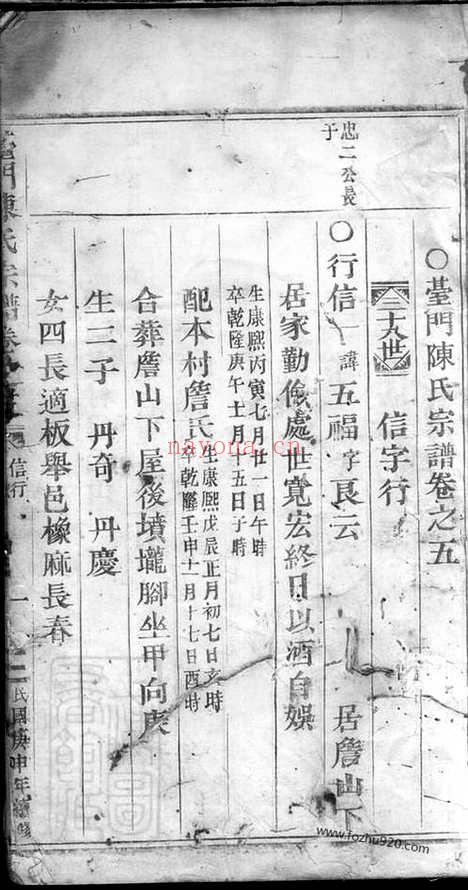 〇臺門陳氏宗譜卷之五
三十九世 信字行
忠二公長
于
〇行信一諱五福字良云 居詹山下
居家勤儉處世寬宏終日以酒自娛
生康熙丙寅七月廿一日午時
卒乾隆庚午十月十五日子時
配本村詹氏
生康熙戊辰正月初七日亥時
卒乾隆壬申十一月十七日酉時
合葬詹山下屋後墳壠腳坐甲向庚
生二子 丹奇 丹慶
女四長適板舉邑橡麻長春
臺門陳氏宗譜卷之五
信行
一
民國庚申年續修
nayona.cn
www.fozhu920.com